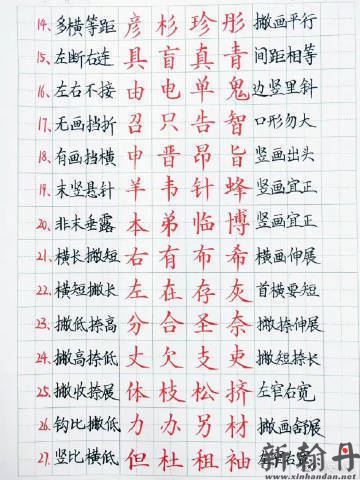 14、多横等距 彦 杉 珍 彤 撇画平行
15、左断右连 具 盲 真 青 间距相等
16、左右不接 由 电 单 鬼 边竖里斜
17、无画挡折 召 只 告 智 口形勿大
18、有画挡横 申 晋 昂 旨 竖画出头
19、末竖悬针 羊 韦 针 蜂 竖画宜正
20、非末垂露 本 弟 临 博 竖画宜正
21、横长撇短 右 有 布 希 横画伸展
22、横短撇长 左 在 存 灰 首横要短
23、撇低捺高 分 合 圣 奈 撇捺伸展
24、撇高捺低 丈 欠 支 吏 撇短捺长
25、撇收捺展 体 枝 松 挤 左窄右宽
26、钩比撇低 力 办 另 材 撇画舒展
27、竖比横低 但 杜 租 袖
新翰丹
www.xinhandan.net